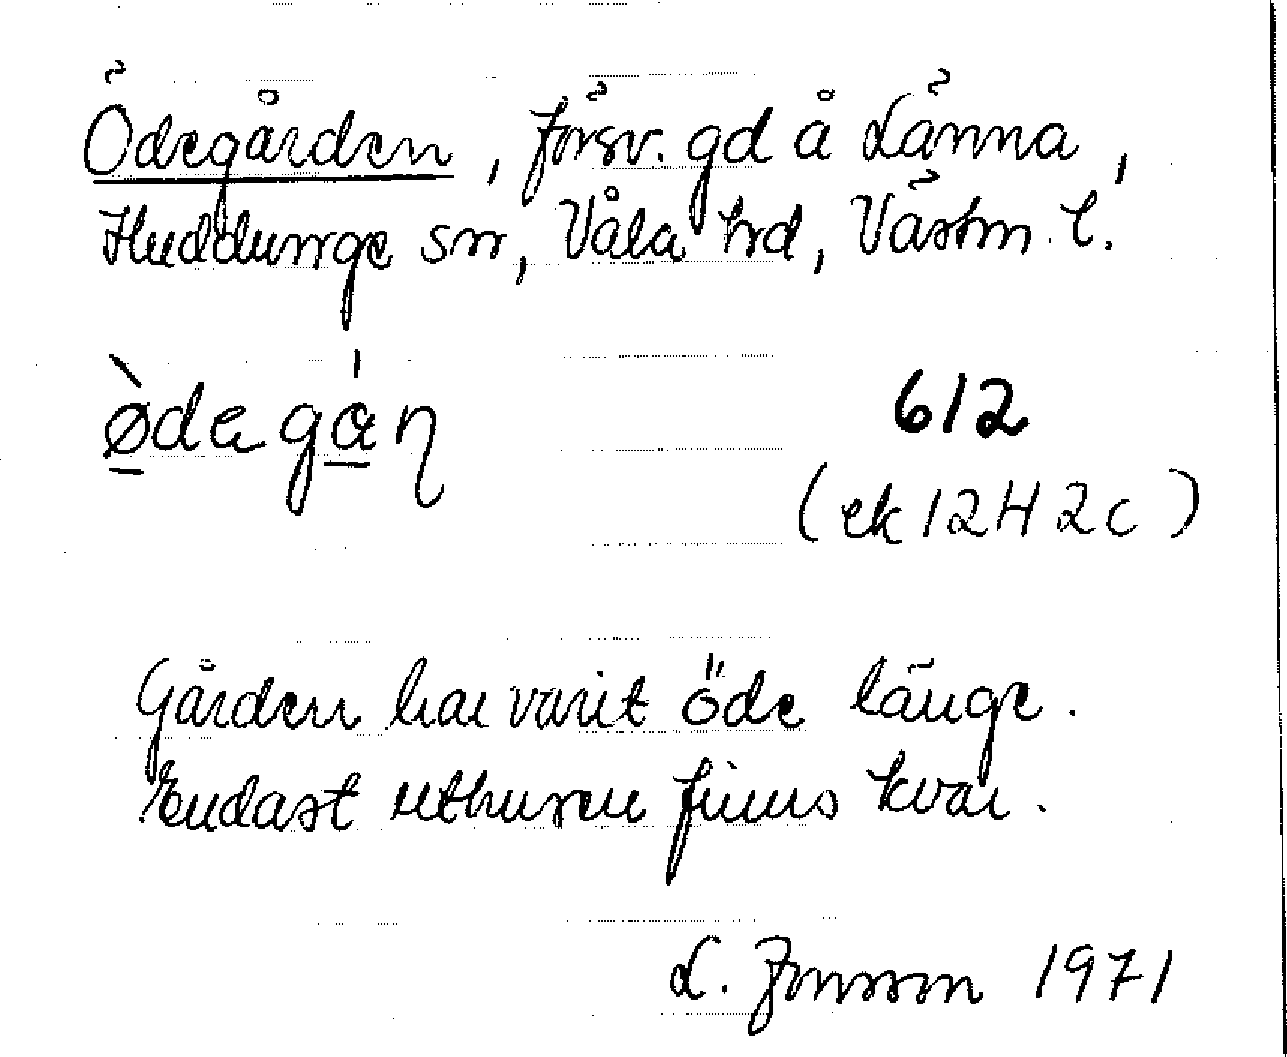 Ödegården, försv. gd å Länna,
Huddunge sn, Våla hd, Västm. l.
ø̀degǻɳ
612
(ek 12H2c)
Gården har varit öde länge.
Endast uthusen finns kvar.
L. Jonsson 1971